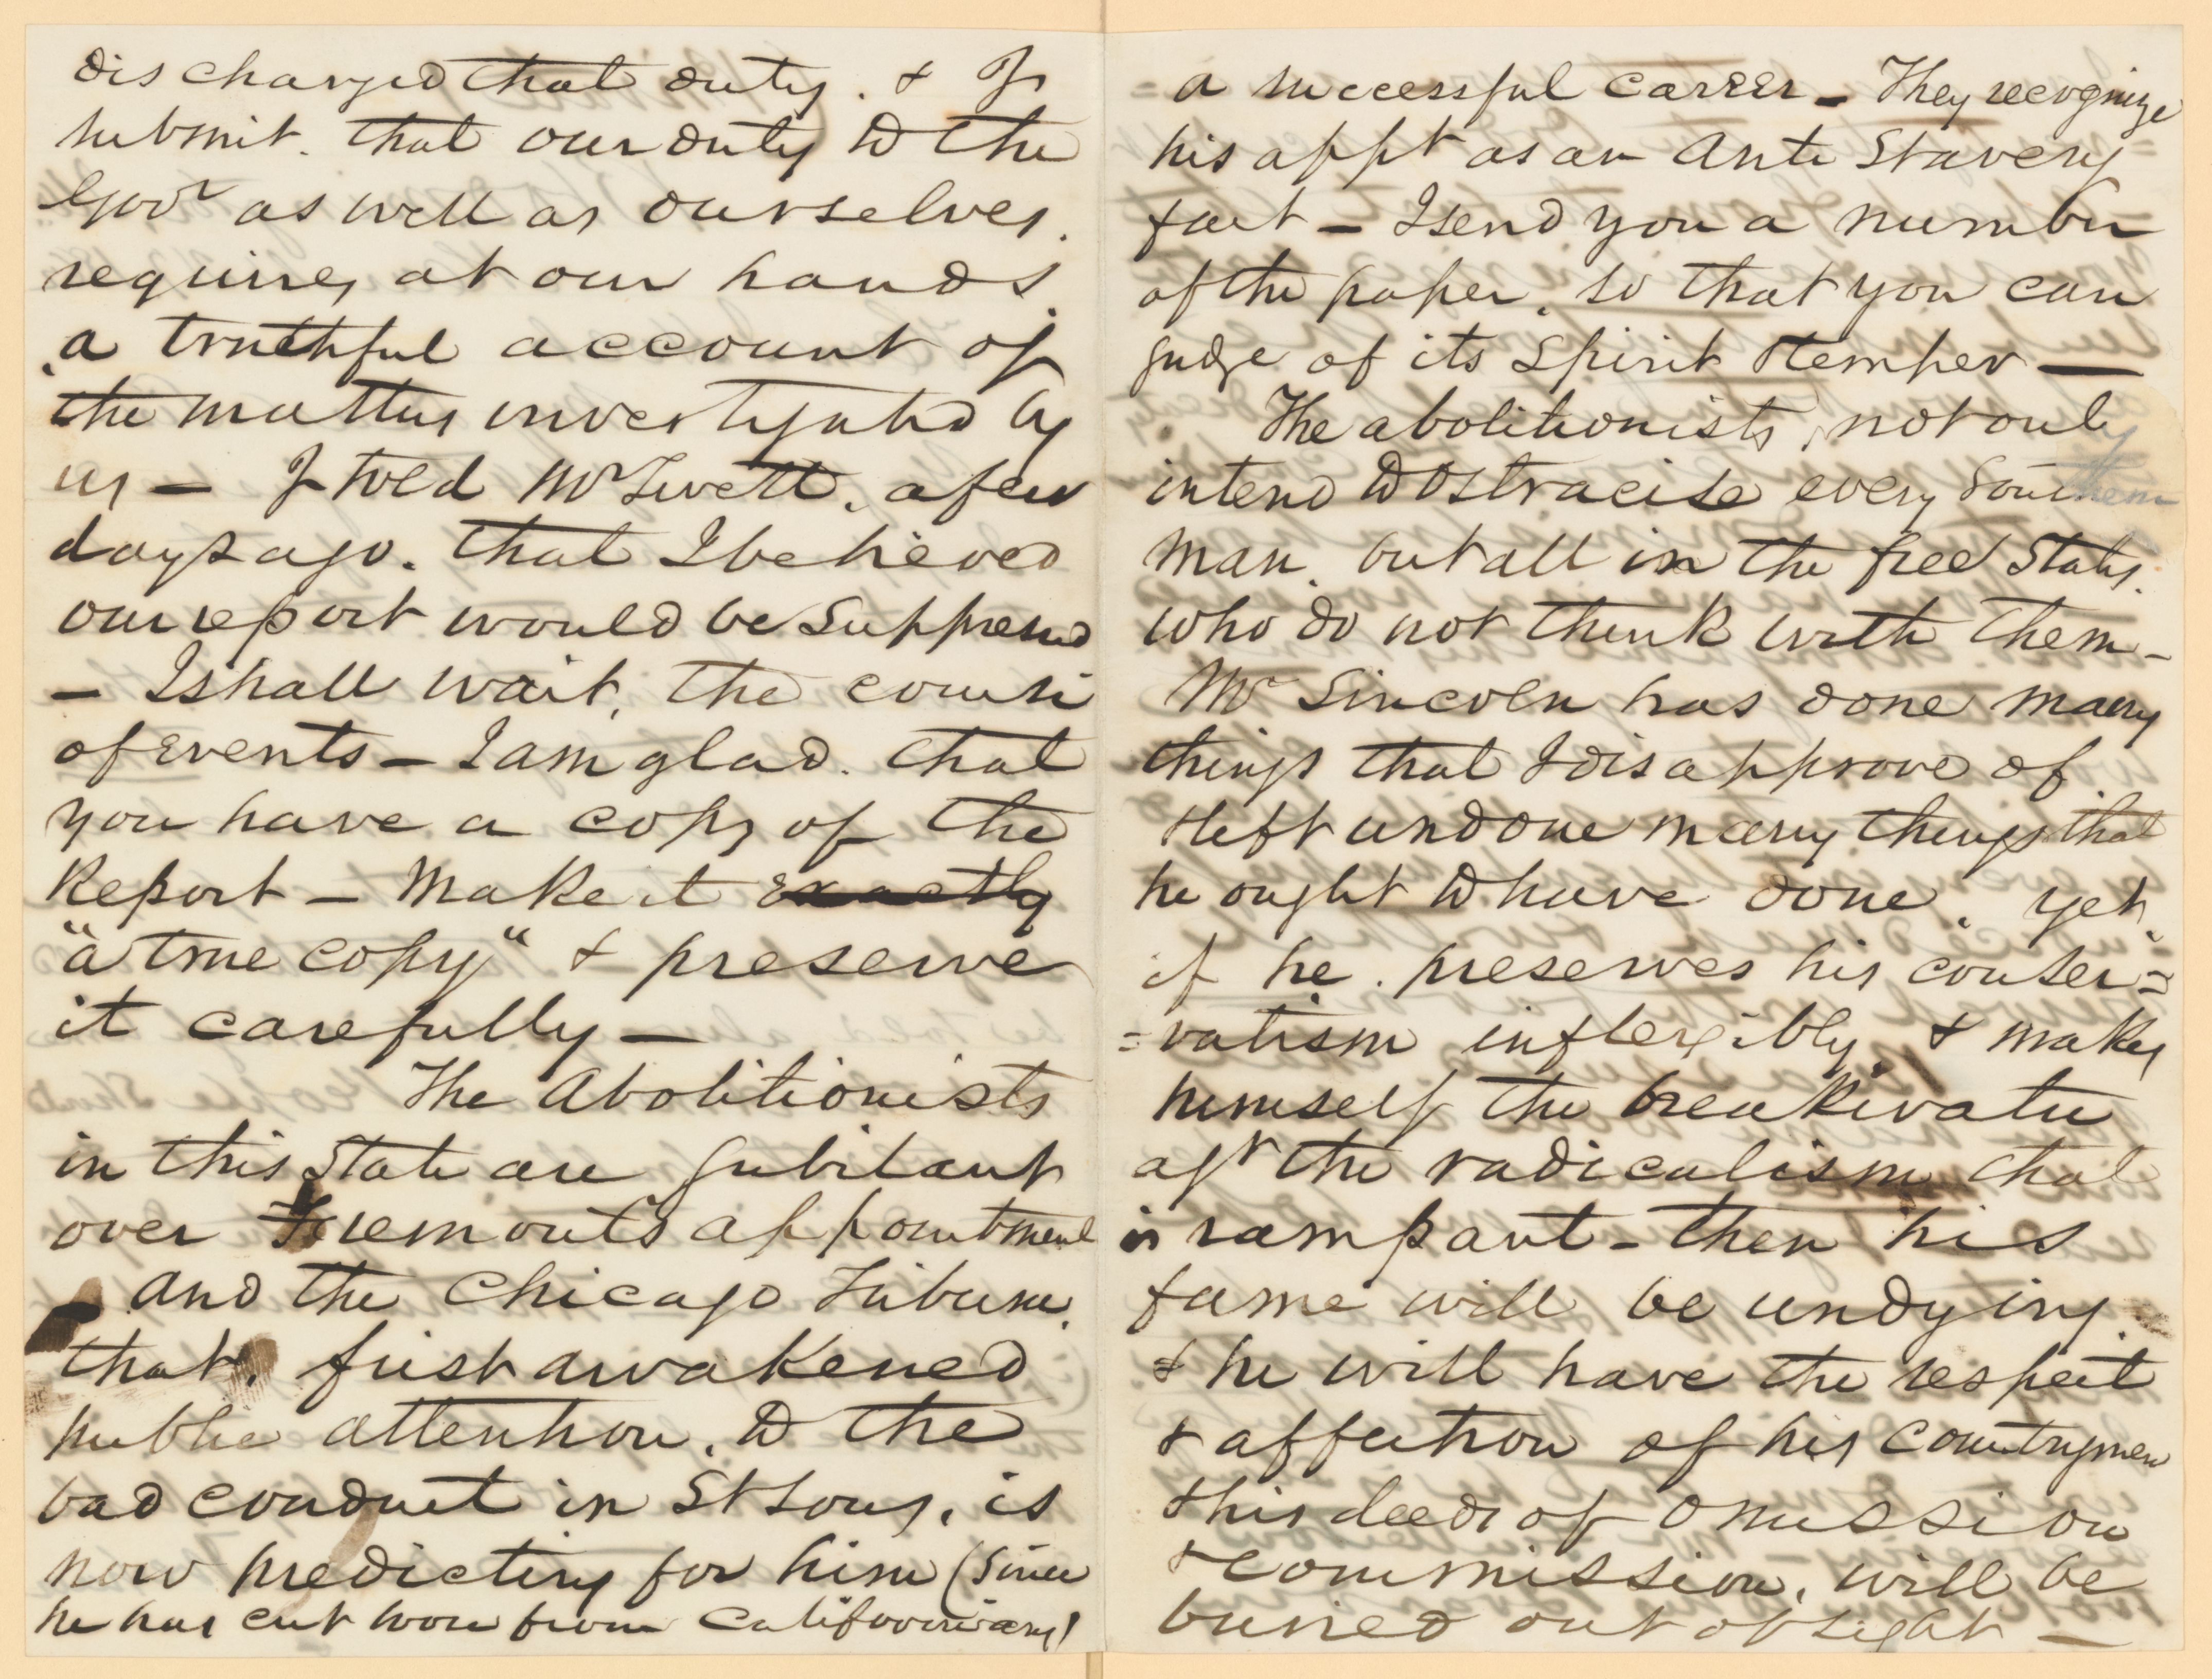 discharged that duty. & I
submit. that our duty to the
Govt as well as ourselves.
requires, at our hands,
a truthful account of
the matters investigated by
us — I told Mr Lovett, a few
days ago. that I believed
our report would be suppressed
— I shall wait, the course
of events — I am glad. that
you have a copy of the
Report — Make it exactly
"a true copy" & preserve
it carefully —
The Abolitionists
in this State are jubilant
over Fremont's appointment
— and the Chicago Tribune,
that, first awakened
public attention, to the
bad conduct in St Louis, is
now predicting for him (since
he has cut loose from Californians)
= a successful career — They recognize
his appt as an Anti Slavery
fact — I send you a number
of the paper, so that you can
judge of its spirit & temper —
The abolitionists, not only
intend to ostracise every Southern
man, but all in the free States,
who do not think with them —
Mr Lincoln has done many
things that I disapprove of
& left undone many things that
he ought to have done. yet,
if he . preserves his conser=
=vatism inflexibly, & makes
himself the breakwater
agt the radicalism that
is rampant — then his
fame will be undying.
& he will have the respect
& affection of his countrymen
& his deeds of omission
& commission, will be
buried out of sight —